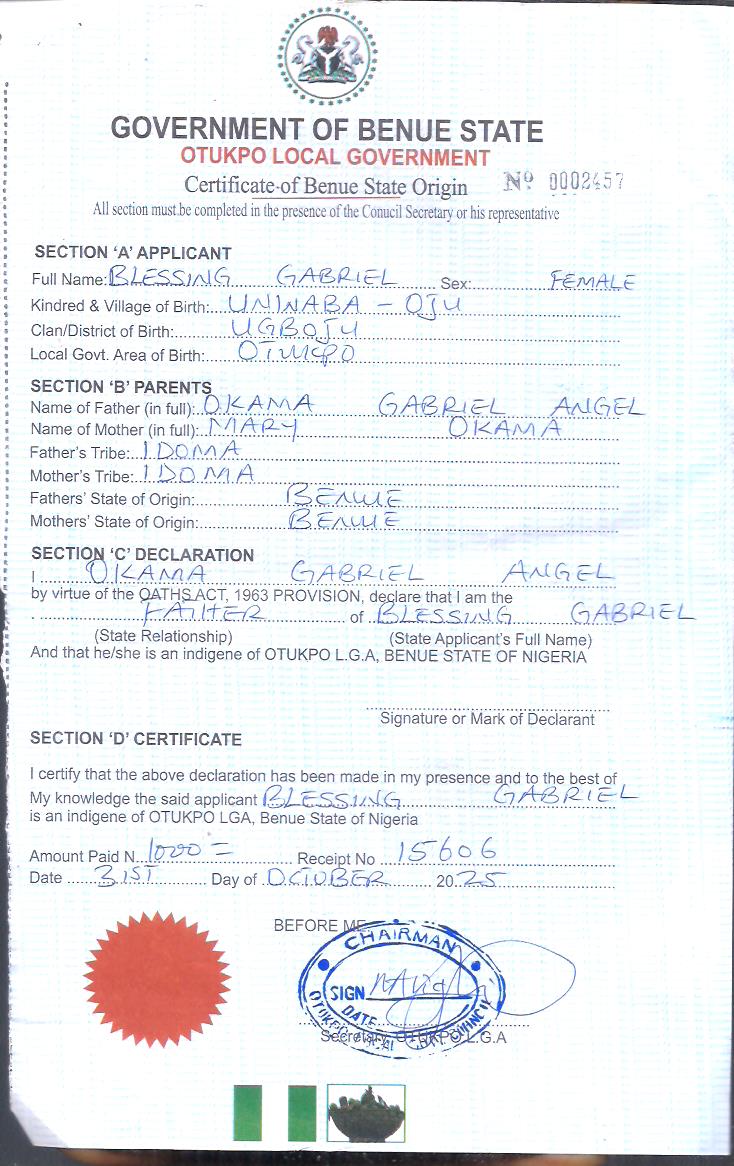 GOVERNMENT OF BENUE STATE
OTUKPO LOCAL GOVERNMENT
Certificate of Benue State Origin Nº 0002457
All section must be completed in the presence of the Conucil Secretary or his representative
SECTION ‘A’ APPLICANT
Full Name: BLESSING GABRIEL Sex: FEMALE
Kindred & Village of Birth: UNINABA - OJU
Clan/District of Birth: UGBOJU
Local Govt. Area of Birth: OTUKPO
SECTION ‘B’ PARENTS
Name of Father (in full): OKAMA GABRIEL ANGEL
Name of Mother (in full): MARY OKAMA
Father's Tribe: IDOMA
Mother's Tribe: IDOMA
Fathers' State of Origin: BENUE
Mothers' State of Origin: BENUE
SECTION ‘C’ DECLARATION
I OKAMA GABRIEL ANGEL
by virtue of the OATHS ACT, 1963 PROVISION, declare that I am the
FATHER of BLESSING GABRIEL
(State Relationship) (State Applicant's Full Name)
And that he/she is an indigene of OTUKPO L.G.A, BENUE STATE OF NIGERIA
Signature or Mark of Declarant
SECTION ‘D’ CERTIFICATE
I certify that the above declaration has been made in my presence and to the best of
My knowledge the said applicant BLESSING GABRIEL
is an indigene of OTUKPO LGA, Benue State of Nigeria
Amount Paid N 1000= Receipt No 15606
Date 31ST Day of OCTOBER 2025
BEFORE ME
CHAIRMAN
SIGN
DATE
OTUKPO LOCAL
Secretary, OTUKPO L.G.A